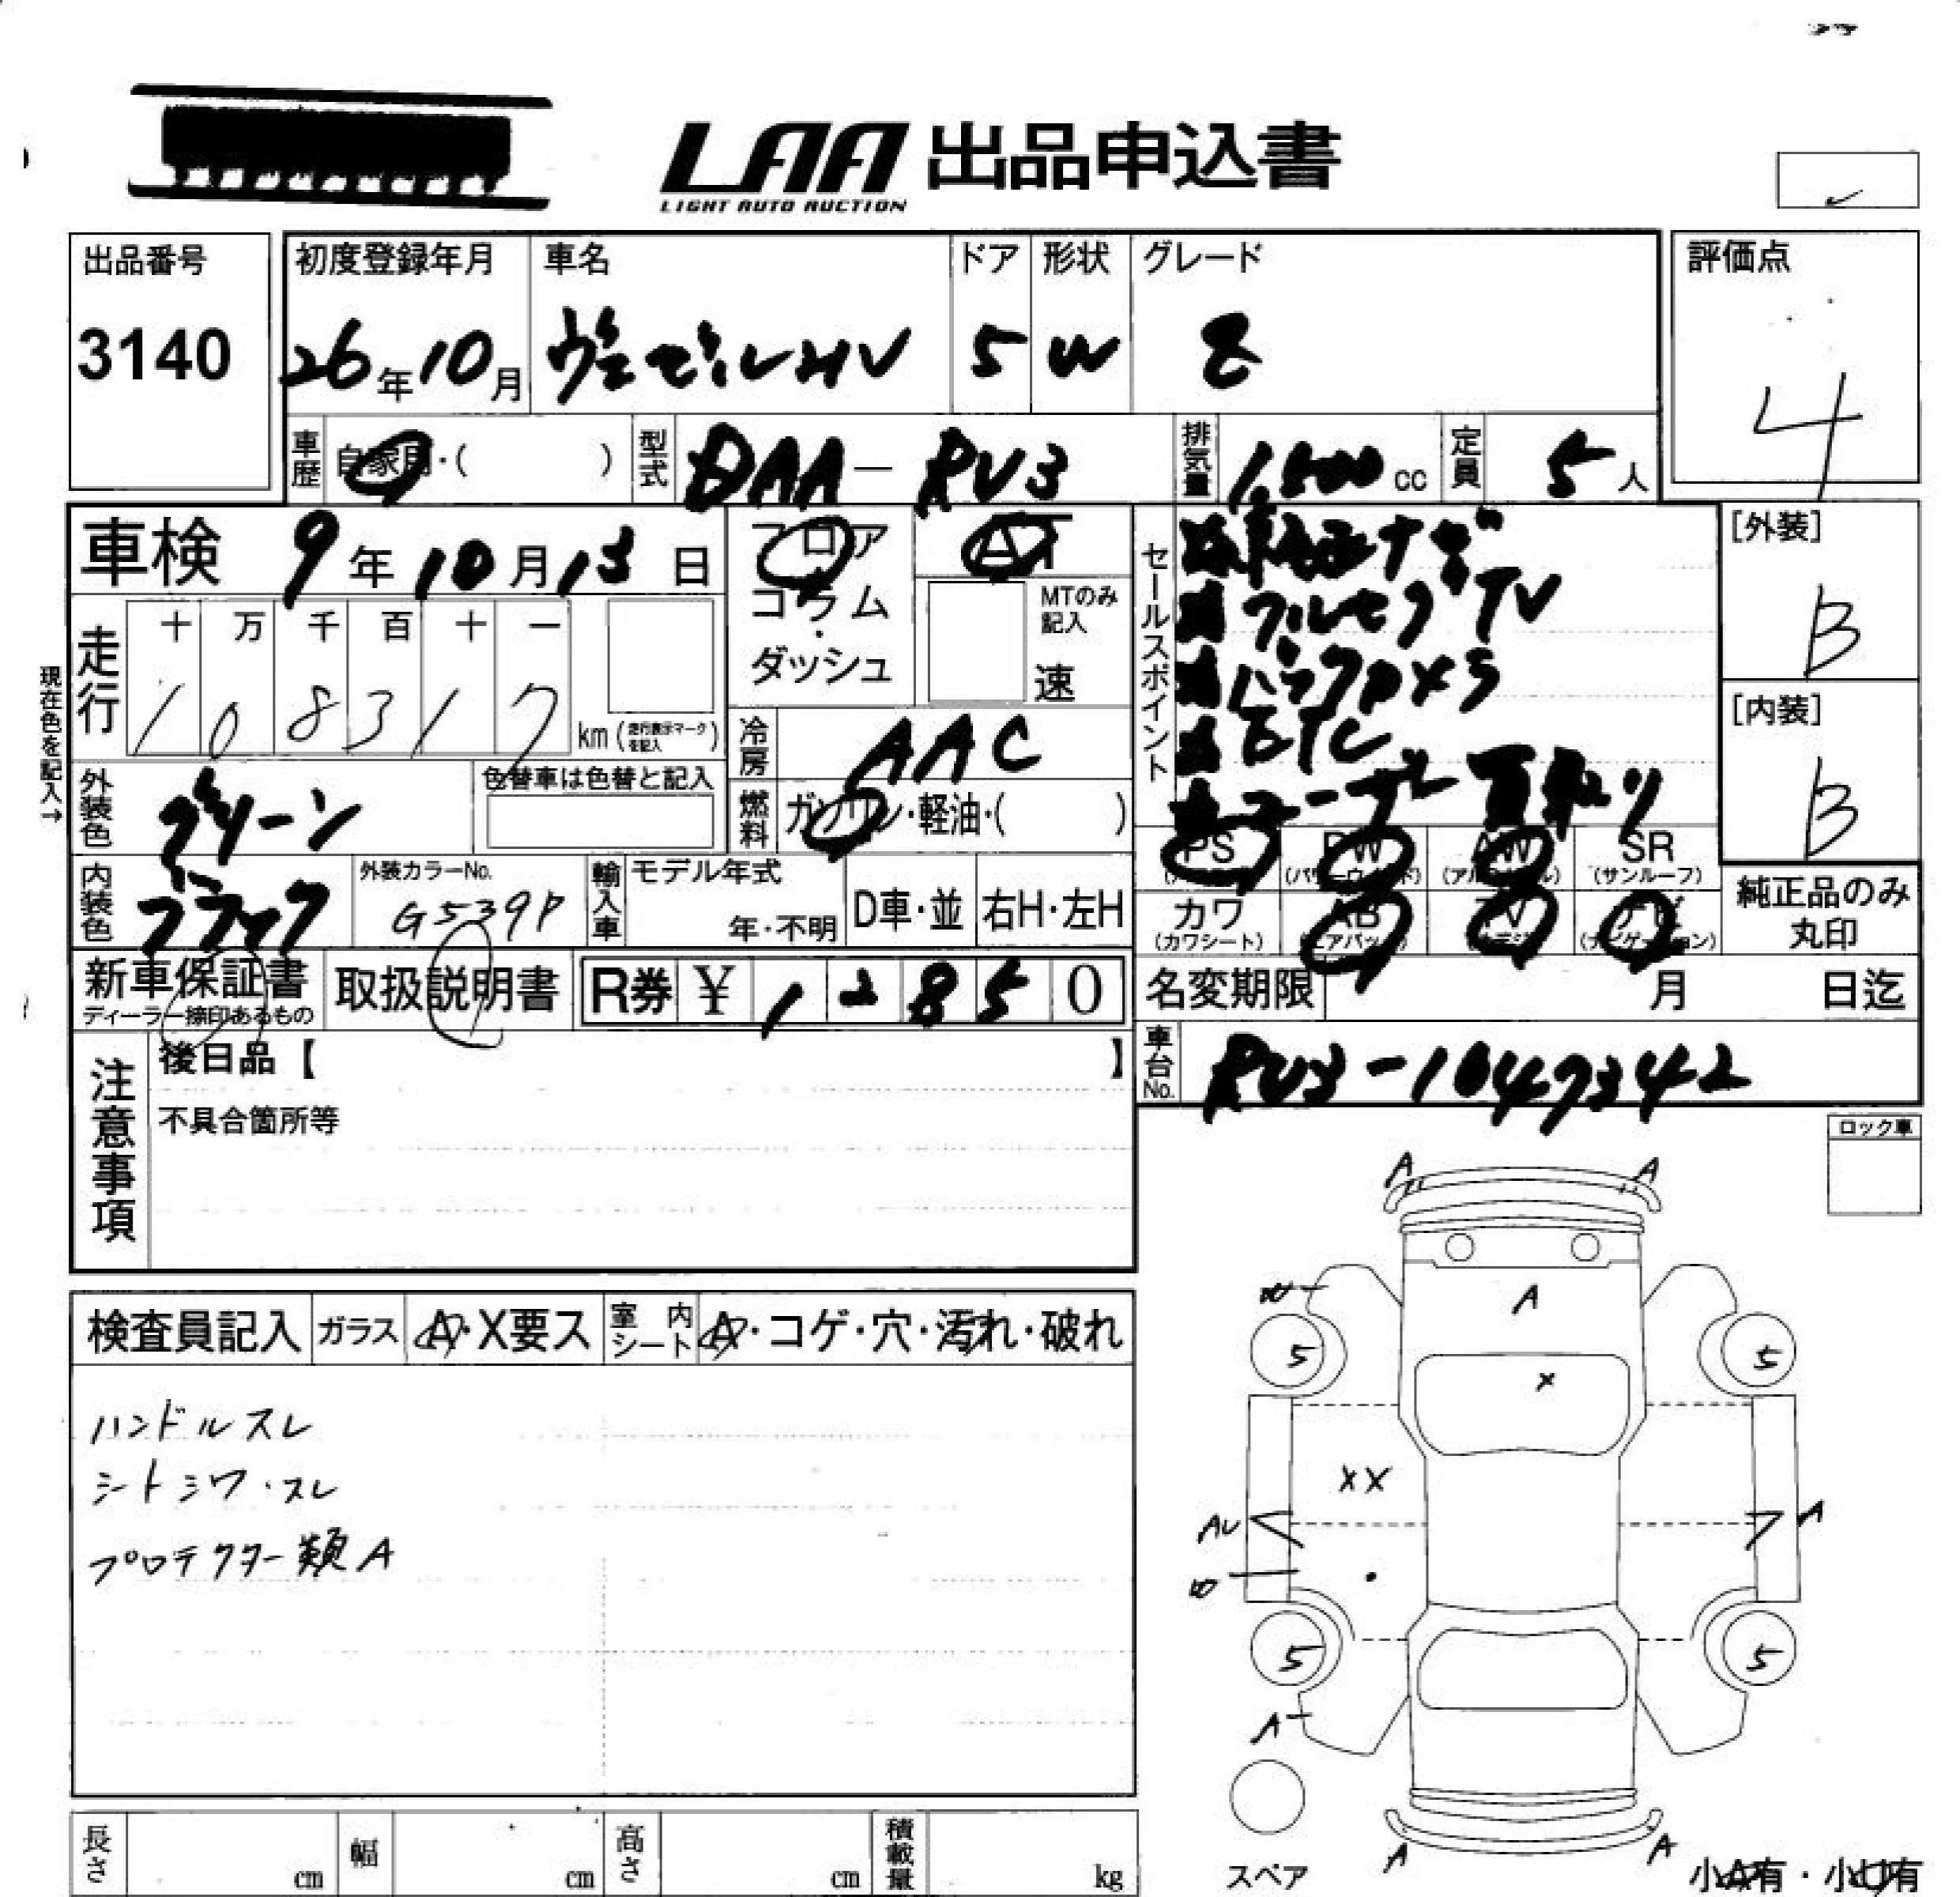 LAA 出品申込書
LIGHT AUTO AUCTION
出品番号
3140
初度登録年月
26年10月
車名
ヴェゼルHV
ドア
5
形状
W
グレード
Z
評価点
4
車歴 自家用・( )
型式 DAA-RV3
排気量 1,500 cc
定員 5 人
車検 9年10月13日
フロア
コラム
・
ダッシュ
AT
MTのみ記入
速
セールスポイント
ナビ
フルセグTV
バックカメラ
ETC
[外装]
B
[内装]
B
現在色を記入→
走行
十 万 千 百 十 一
1 0 8 3 1 7
km (走行表示マークを記入)
冷房 AAC
外装色 グリーン
色替車は色替と記入
燃料 ガソリン・軽油・( )
内装色 ブラック
外装カラーNo.
G539P
輸入車
モデル年式
年・不明
D車・並
右H・左H
PS PW AW SR
(パワーウインド) (アルミホイル) (サンルーフ)
カワ AB TV ナビ
(カワシート) (エアバック) (ナビゲーション)
純正品のみ
丸印
新車保証書
ディーラー捺印あるもの
取扱説明書
R券 ¥ 1 2 8 5 0
名変期限 月 日迄
車台No. RV3-1047342
注意事項
後日品【 】
不具合箇所等
ロック車
検査員記入
ガラス A・X要ス
室内シート A・コゲ・穴・汚れ・破れ
ハンドルスレ
シートシワ・スレ
プロテクター類A
A A
W
A
5 5
X
XX
AU A
5 5
A
A A
スペア
小A有・小U有
長さ cm
幅 cm
高さ cm
積載量 kg